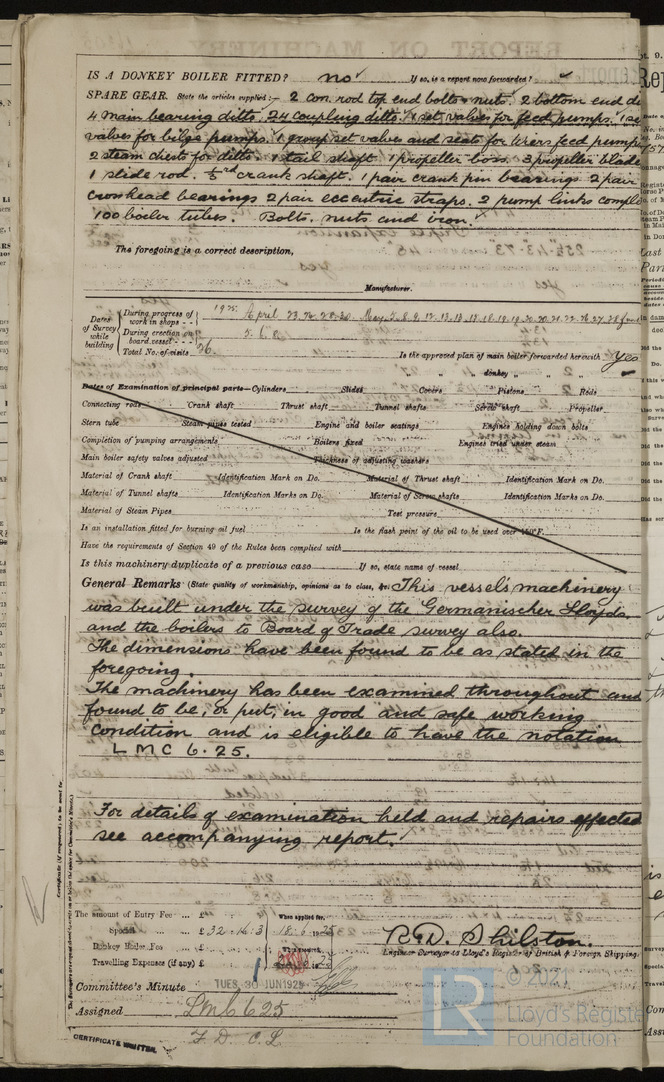 IS A DONKEY BOILER FITTED? no ✓ If so, is a report now forwarded? ✓
SPARE GEAR. State the articles supplied:— 2 con. rod top end bolts & nuts. 2 bottom end do
4 main bearing ditto. 24 coupling ditto. 1 set valves for feed pumps. 1 se
valves for bilge pumps. 1 group set valves and seats for Weirs feed pump.
2 steam chests for ditto. 1 tail shaft. 1 propeller boss. 3 propeller blade
1 slide rod. ⅓rd crank shaft. 1 pair crank pin bearings. 2 pair
crosshead bearings 2 pair eccentric straps. 2 pump links comple
100 boiler tubes. Bolts. nuts and iron.
The foregoing is a correct description,
Manufacturer.
Dates of Survey while building
During progress of work in shops - - 1925 April 23. 
During erection on board vessel - - - 5. 6. 8.
Total No. of visits 26.
Is the approved plan of main boiler forwarded herewith Yes
" " " donkey " " "
Dates of Examination of principal parts—Cylinders Slides Covers Pistons Rods
Connecting rods Crank shaft Thrust shaft Tunnel shafts Screw shaft Propeller
Stern tube Steam pipes tested Engine and boiler seatings Engines holding down bolts
Completion of pumping arrangements Boilers fixed Engines tried under steam
Main boiler safety valves adjusted Thickness of adjusting washers
Material of Crank shaft Identification Mark on Do. Material of Thrust shaft Identification Mark on Do.
Material of Tunnel shafts Identification Marks on Do. Material of Screw shafts Identification Marks on Do.
Material of Steam Pipes Test pressure
Is an installation fitted for burning oil fuel Is the flash point of the oil to be used over 150°F.
Have the requirements of Section 49 of the Rules been complied with
Is this machinery duplicate of a previous case If so, state name of vessel
General Remarks (State quality of workmanship, opinions as to class, &c. This vessel's machinery
was built under the survey of the Germanischer Lloyds
and the boilers to Board of Trade survey also.
The dimensions have been found to be as stated in the
foregoing.
The machinery has been examined throughout and
found to be, or put, in good and safe working
condition and is eligible to have the notation
LMC 6.25.
For details of examination held and repairs effected
see accompanying report.
The amount of Entry Fee ... £ When applied for,
Special ... £ 32 : 16 : 3 18.6.1925
Donkey Boiler Fee ... £
Travelling Expenses (if any) £
R.D. Shilston.
Engineer Surveyor to Lloyd's Register of British & Foreign Shipping.
Committee's Minute TUES. 30 JUN 1925
Assigned LMC 6 25
F. D. C.L.
CERTIFICATE WRITTEN.
© 2021
Lloyd's Registe
Foundation